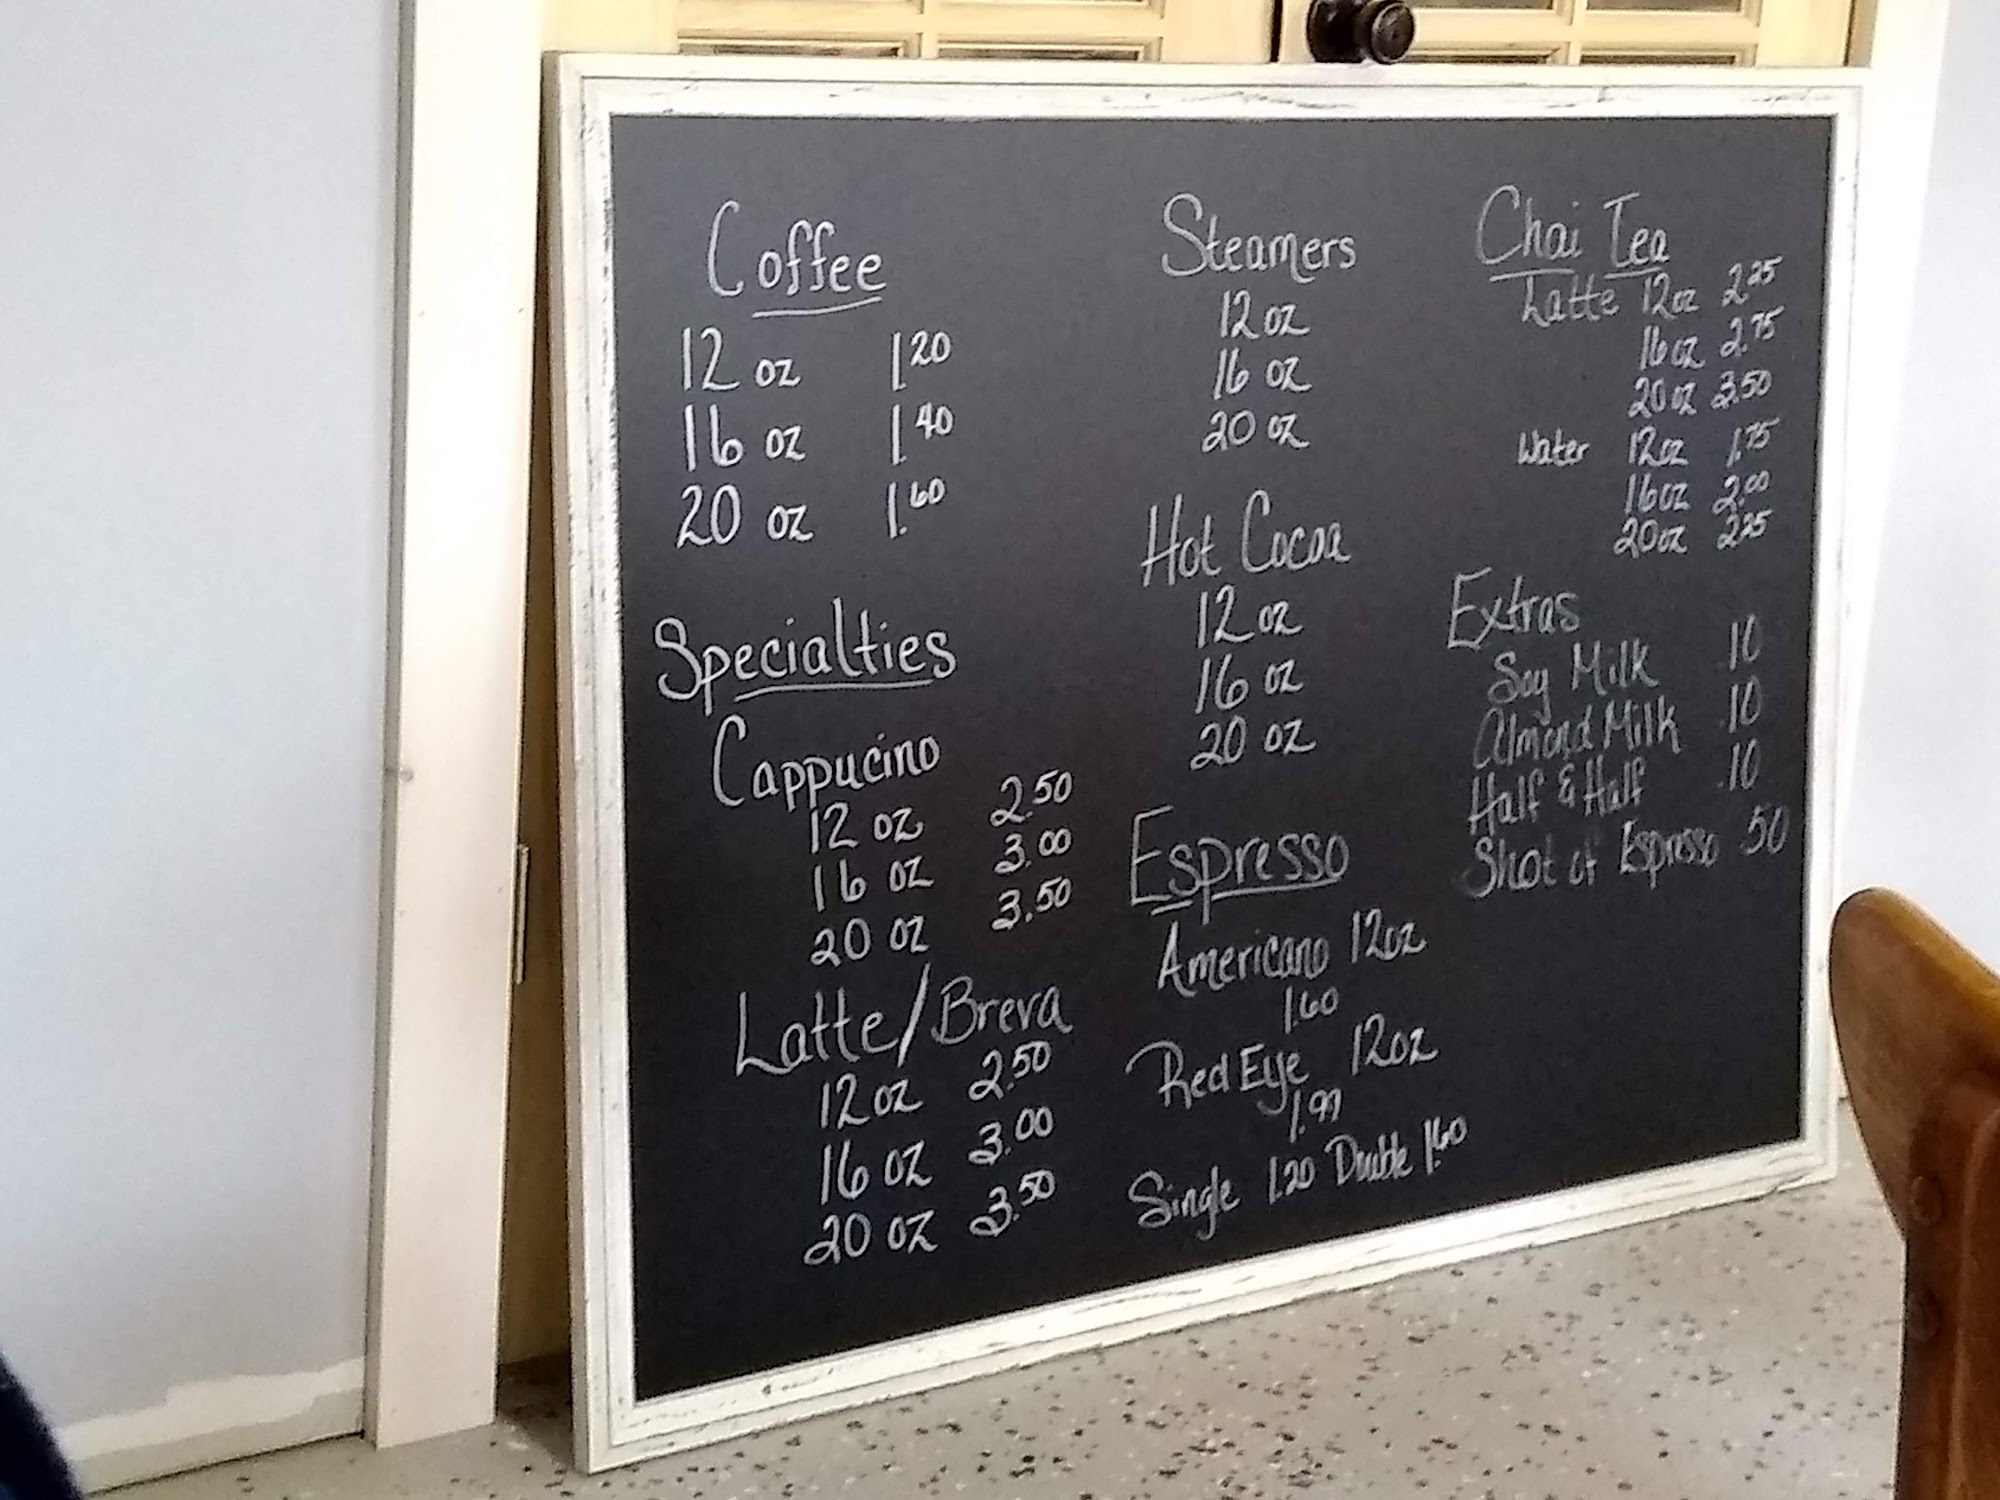 Coffee
12 oz 1.20
16 oz 1.40
20 oz 1.60
Specialties
Cappucino
12 oz 2.50
16 oz 3.00
20 oz 3.50
Latte/Breva
12 oz 2.50
16 oz 3.00
20 oz 3.50
Steamers
12 oz
16 oz
20 oz
Hot Cocoa
12 oz
16 oz
20 oz
Espresso
Americano 12oz
1.60
Red Eye 12oz
Single 1.20 Double 1.60
Chai Tea
Latte 12oz 2.25
16 oz 2.75
20 oz 3.50
Water 12oz 1.75
16oz 2.00
20oz 2.25
Extras
Soy Milk .10
Almond Milk .10
Half & Half .10
Shot of Espresso .50